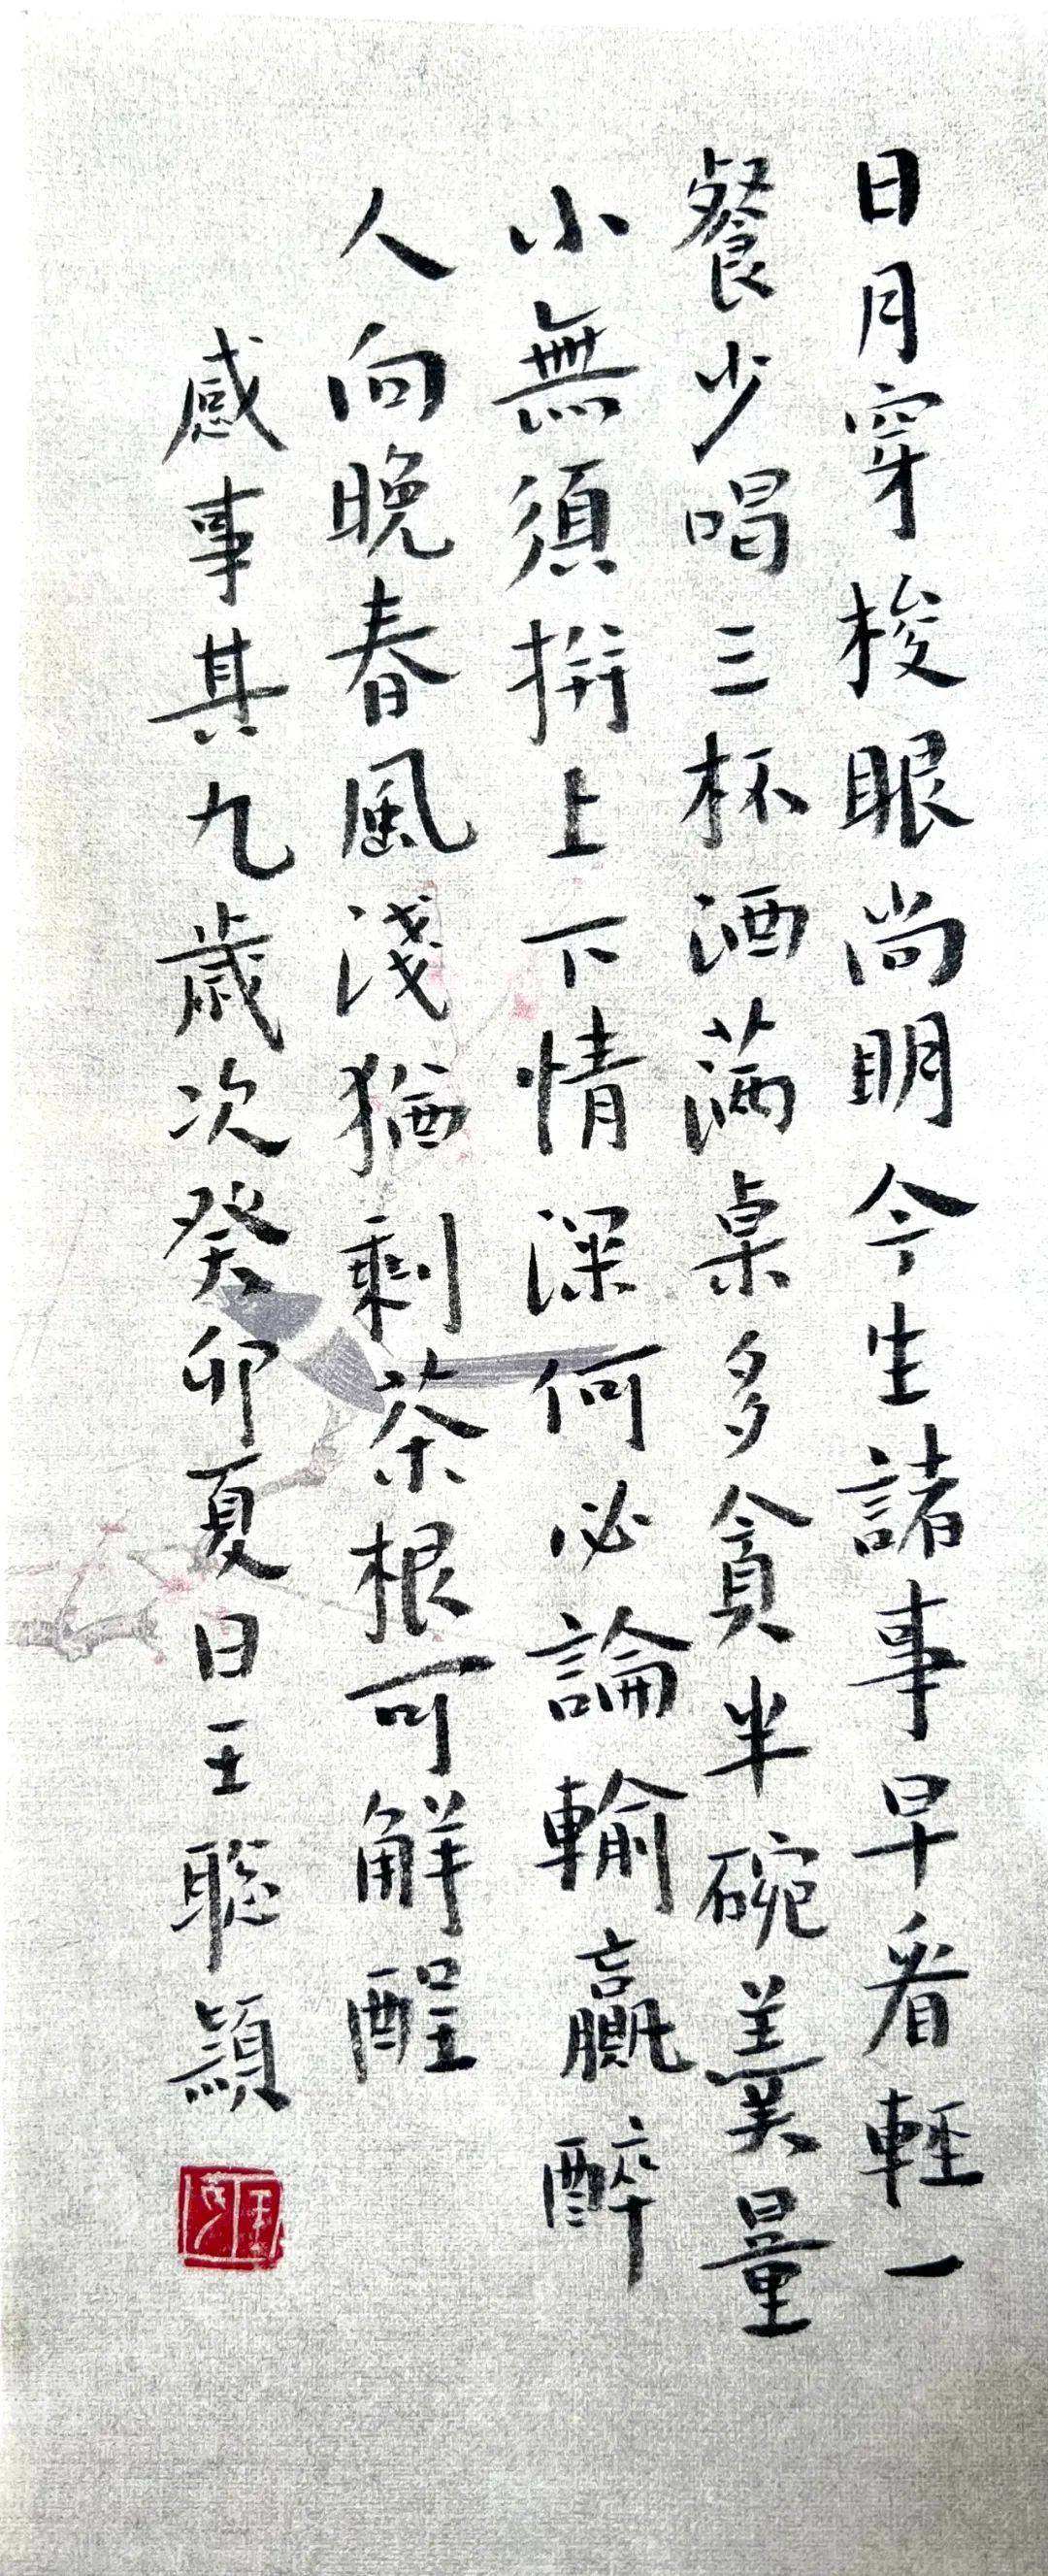 日月穿梭眼尚明今生諸事早看輕一
餐少唱三杯酒满桌多貪半碗羹量
小無須拼上下情深何必論輸贏醉
人向晚春風淺猶剩茶根可解酲
感事其九歲次癸卯夏日王聪穎